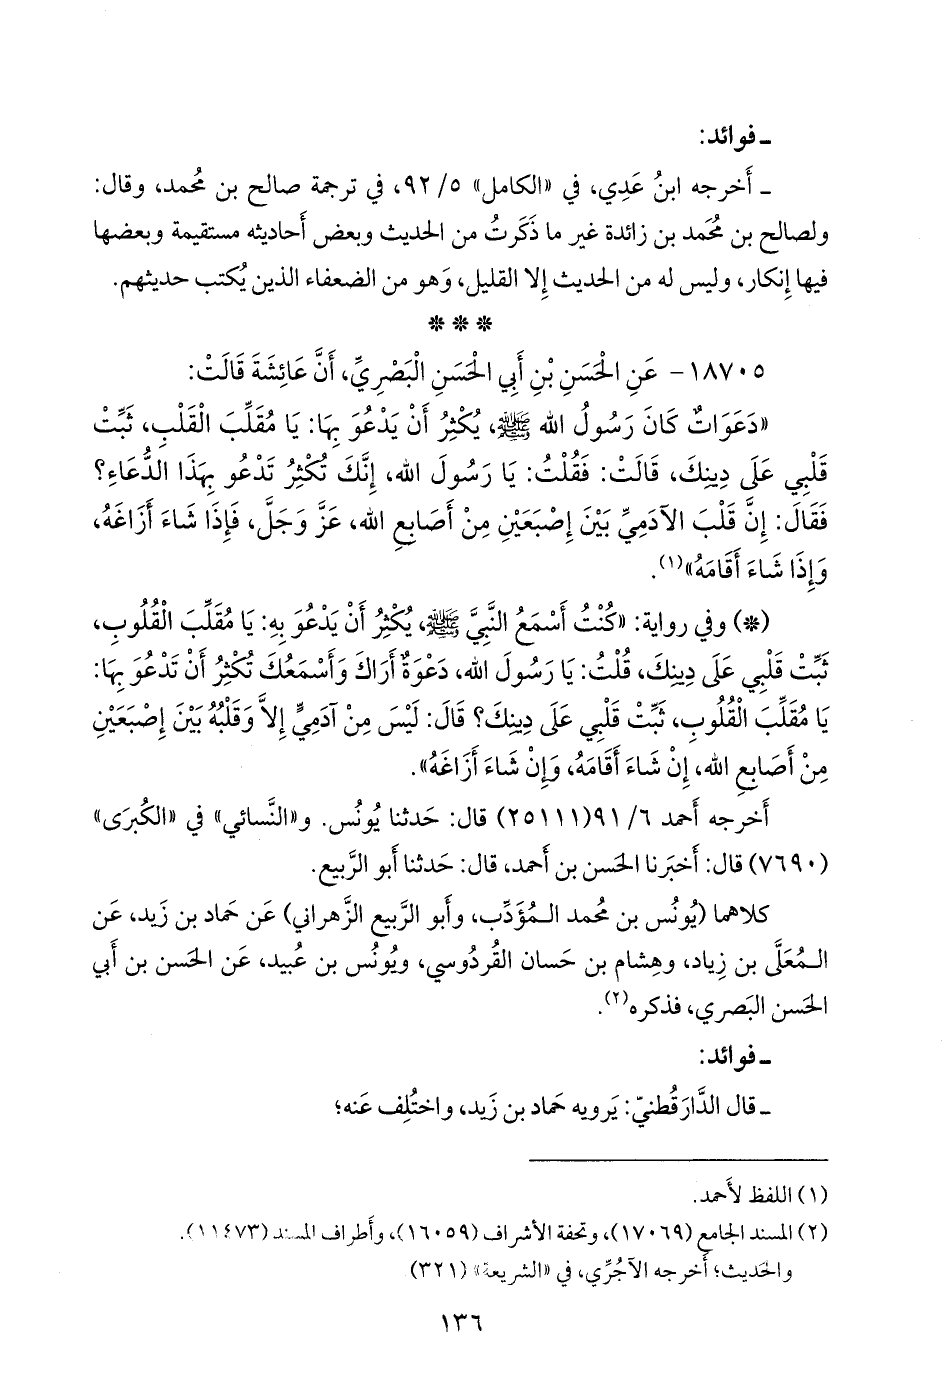 ـ فوائد:
ـ أَخرجه ابنُ عَدِي، في «الكامل» ٥/ ٩٢، في ترجمة صالح بن مُحمد، وقال:
ولصالح بن مُحَمد بن زائدة غير ما ذَكَرتُ من الحديث وبعض أَحاديثه مستقيمة وبعضها
فيها إِنكار، وليس له من الحديث إِلا القليل، وَهو من الضعفاء الذين يُكتب حديثهم.
* * *
١٨٧٠٥- عَنِ الْحَسَنِ بْنِ أَبِي الْحَسَنِ الْبَصْرِيِّ، أَنَّ عَائِشَةَ قَالَتْ:
«دَعَوَاتٌ كَانَ رَسُولُ الله ﷺ، يُكْثِرُ أَنْ يَدْعُوَ بِهَا: يَا مُقَلِّبَ الْقَلْبِ، ثَبِّتْ
قَلْبِي عَلَى دِينِكَ، قَالَتْ: فَقُلْتُ: يَا رَسُولَ الله، إِنَّكَ تُكْثِرُ تَدْعُو بِهَذَا الدُّعَاءِ؟
فَقَالَ: إِنَّ قَلْبَ الآدَمِيِّ بَيْنَ إِصْبَعَيْنِ مِنْ أَصَابِعِ الله، عَزَّ وَجَلَّ، فَإِذَا شَاءَ أَزَاغَهُ،
وَإِذَا شَاءَ أَقَامَهُ»(١).
(*) وفي رواية: «كُنْتُ أَسْمَعُ النَّبِيَّ ﷺ، يُكْثِرُ أَنْ يَدْعُوَ بِهِ: يَا مُقَلِّبَ الْقُلُوبِ،
ثَبِّتْ قَلْبِي عَلَى دِينِكَ، قُلْتُ: يَا رَسُولَ الله، دَعْوَةٌ أَرَاكَ وَأَسْمَعُكَ تُكْثِرُ أَنْ تَدْعُوَ بِهَا:
يَا مُقَلِّبَ الْقُلُوبِ، ثَبِّتْ قَلْبِي عَلَى دِينِكَ؟ قَالَ: لَيْسَ مِنْ آدَمِيٍّ إِلاَّ وَقَلْبُهُ بَيْنَ إِصْبَعَيْنِ
مِنْ أَصَابِعِ الله، إِنْ شَاءَ أَقَامَهُ، وَإِنْ شَاءَ أَزَاغَهُ».
أَخرجه أَحمد ٦/ ٩١(٢٥١١١) قال: حَدثنا يُونُس. و«النَّسائي» في «الكُبرَى»
(٧٦٩٠) قال: أَخبَرنا الحَسن بن أَحمد، قال: حَدثنا أَبو الرَّبيع.
كلاهما (يُونُس بن مُحمد المُؤَدِّب، وأَبو الرَّبيع الزَّهراني) عَن حَماد بن زَيد، عَن
المُعَلَّى بن زِياد، وهِشام بن حَسان القُردُوسي، ويُونُس بن عُبيد، عَن الحَسن بن أَبي
الحَسن البَصري، فذكره(٢).
ـ فوائد:
ـ قال الدَّارَقُطنيّ: يَرويه حَماد بن زَيد، واختُلِف عَنه؛
(١) اللفظ لأَحمد.
(٢) المسند الجامع (١٧٠٦٩)، وتحفة الأشراف (١٦٠٥٩)، وأَطراف المسند (١١٤٧٣).
والحَديث؛ أَخرجه الآجُرِّي، في «الشريعة» (٣٢١)
١٣٦